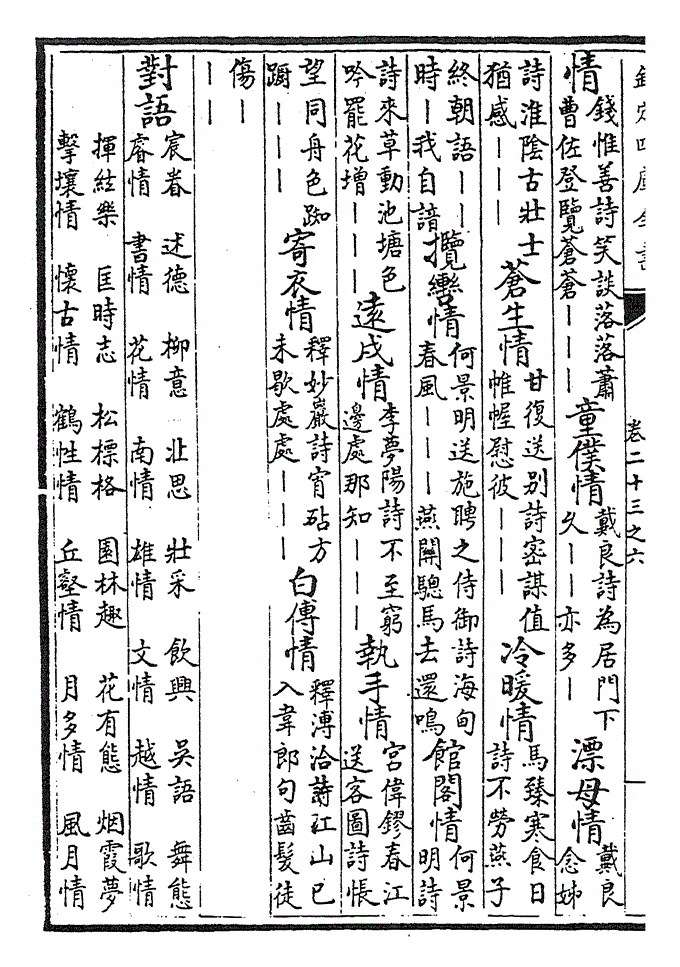 欽定四庫全書
卷二十三之六
情
錢惟善詩笑談落落蕭
曹佐登覽蒼蒼———
童僕情
戴良詩為居門下
久——亦多—
漂母情
戴良
念姊
詩淮陰古壯士
猶感———
蒼生情
甘復送别詩密謀值
帷幄慰彼———
冷暖情
馬臻寒食日
詩不勞燕子
終朝語——
時—我自諳
攬轡情
何景明送施聘之侍御詩海甸
春風———燕關驄馬去還鳴
館閣情
何景
明詩
詩來草動池塘色
吟罷花增———
遠戍情
李夢陽詩不至窮
邊處那知———
執手情
宮偉鏐春江
送客圖詩悵
望同舟色踟
蹰———
寄衣情
釋妙巖詩宵砧方
未歇處處———
白傅情
釋溥洽詩江山已
入韋郎句齒髮徒
傷——
———
對語
宸眷 述德 柳意 北思 壯采 飲興 吳語 舞態
睿情 書情 花情 南情 雄情 文情 越情 歌情
揮絃樂 匡時志 松標格 園林趣 花有態 烟霞夢
擊壤情 懷古情 鶴性情 丘壑情 月多情 風月情